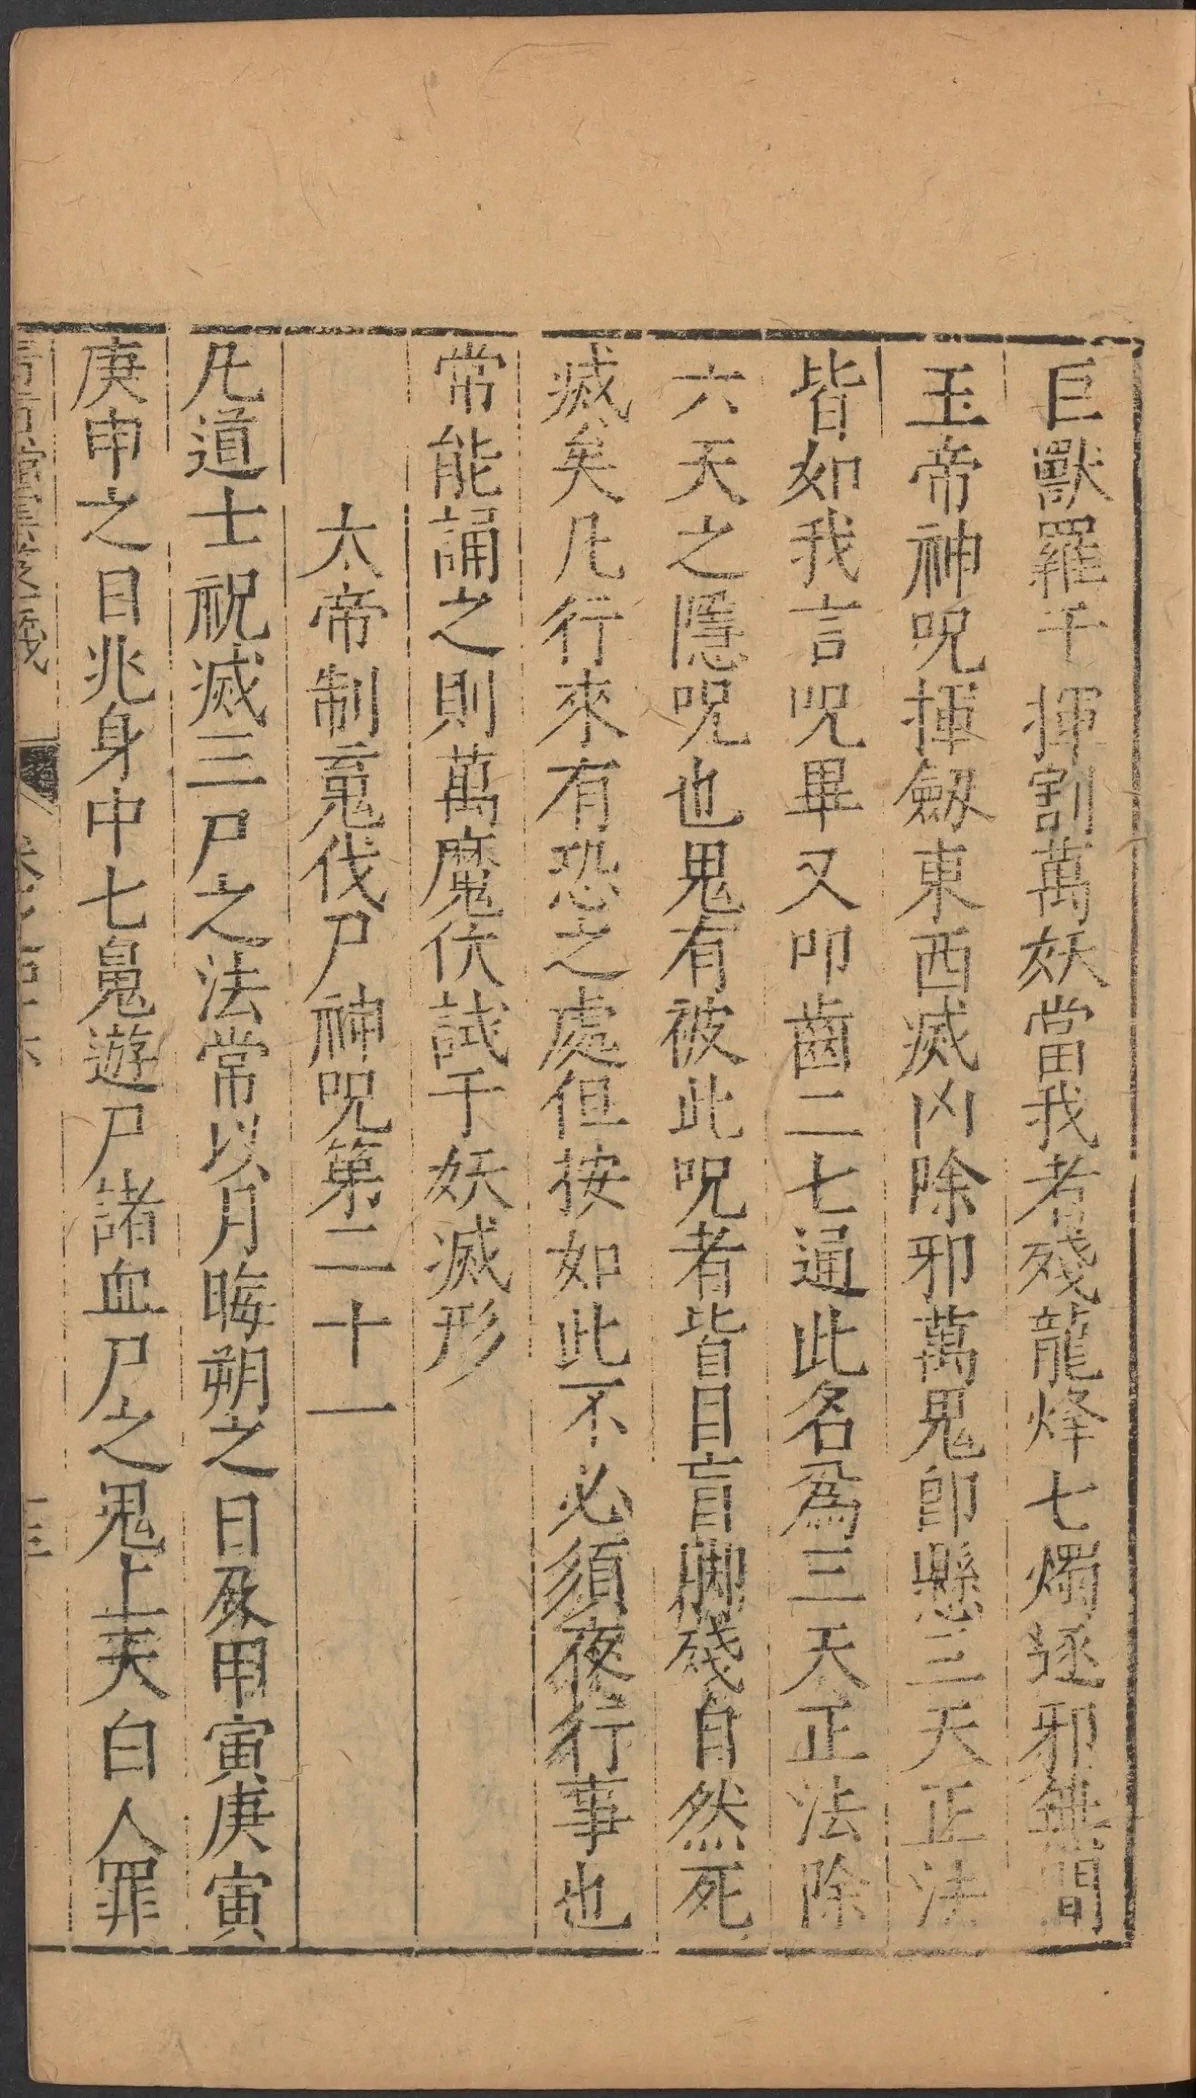 巨獸羅千揮割萬妖當我者殘龍烽七燭逐邪無間
玉帝神呪揮劒東西滅凶除邪萬鬼卽懸三天正法
皆如我言呪畢又叩齒二七通此名爲三天正法除
六天之隱呪也鬼有被此呪者皆目盲腳殘自然死
滅矣凡行來有恐之處但按如此不必須夜行事也
常能誦之則萬魔伏試千妖滅形
太帝制䰟伐尸神呪第二十一
凡道士祝滅三尸之法常以月晦朔之日及甲寅庚寅
庚申之日兆身中七䰟遊尸諸血尸之鬼上天白人罪